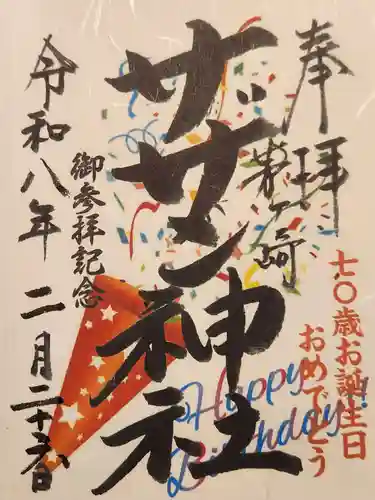 奉拝
茅ヶ崎
サザン神社
七〇歳お誕生日
おめでとう
御参拝記念
令和八年二月二十六日
Happy
Birthday!